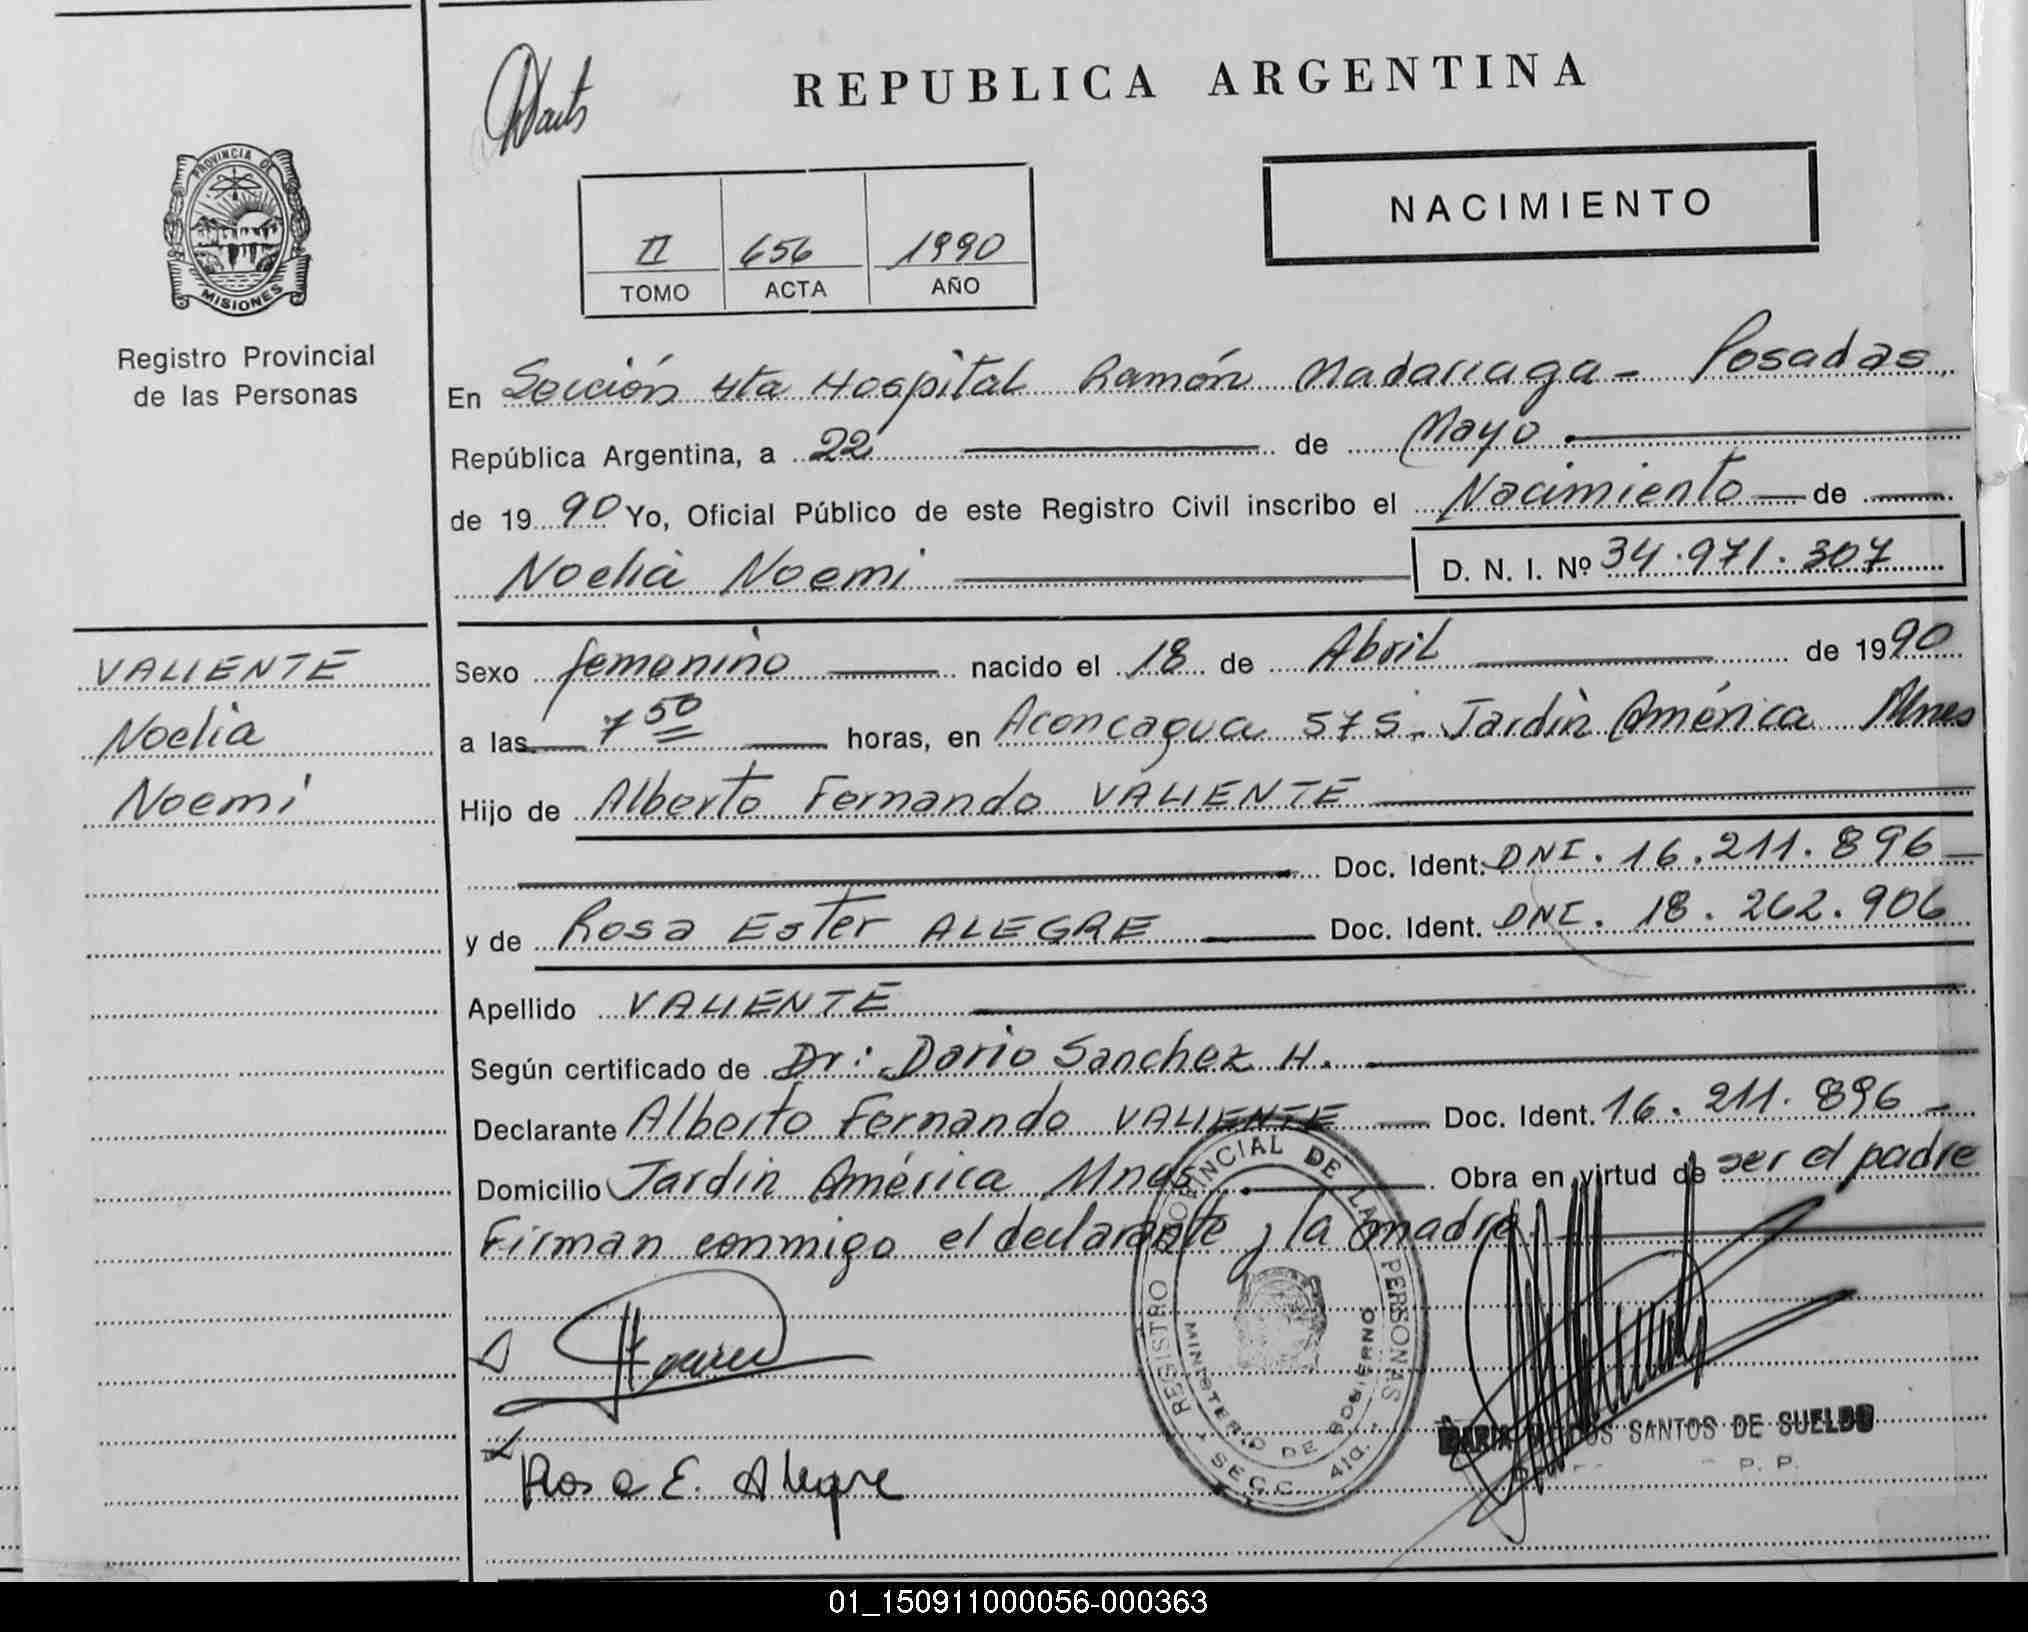 REPUBLICA ARGENTINA
NACIMIENTO
II 656 1990
TOMO ACTA AÑO
PROVINCIA DE
MISIONES
Registro Provincial
de las Personas
En Sección 4ta Hospital Ramón Madariaga - Posadas
República Argentina, a 22 de Mayo
de 1990 Yo, Oficial Público de este Registro Civil inscribo el Nacimiento de
Noelia Noemi D. N. I. Nº 34.971.307
VALIENTE
Noelia
Noemi
Sexo femenino nacido el 18 de Abril de 1990
a las 7 50 horas, en Aconcagua 575 - Jardín América Mnes
Hijo de Alberto Fernando VALIENTE
Doc. Ident. DNI. 16.211.896
y de Rosa Ester ALEGRE Doc. Ident. DNI. 18.262.906
Apellido VALIENTE
Según certificado de Dr: Dario Sanchez H.
Declarante Alberto Fernando VALIENTE Doc. Ident. 16.211.896
Domicilio Jardin América Mnes Obra en virtud de ser el padre
Firman conmigo el declarante y la madre
REGISTRO PROVINCIAL DE LAS PERSONAS
MINISTERIO DE GOBIERNO
SECC. 4ta.
DOS SANTOS DE SUELDO
P. P.
Rosa E. Alegre
01_150911000056-000363